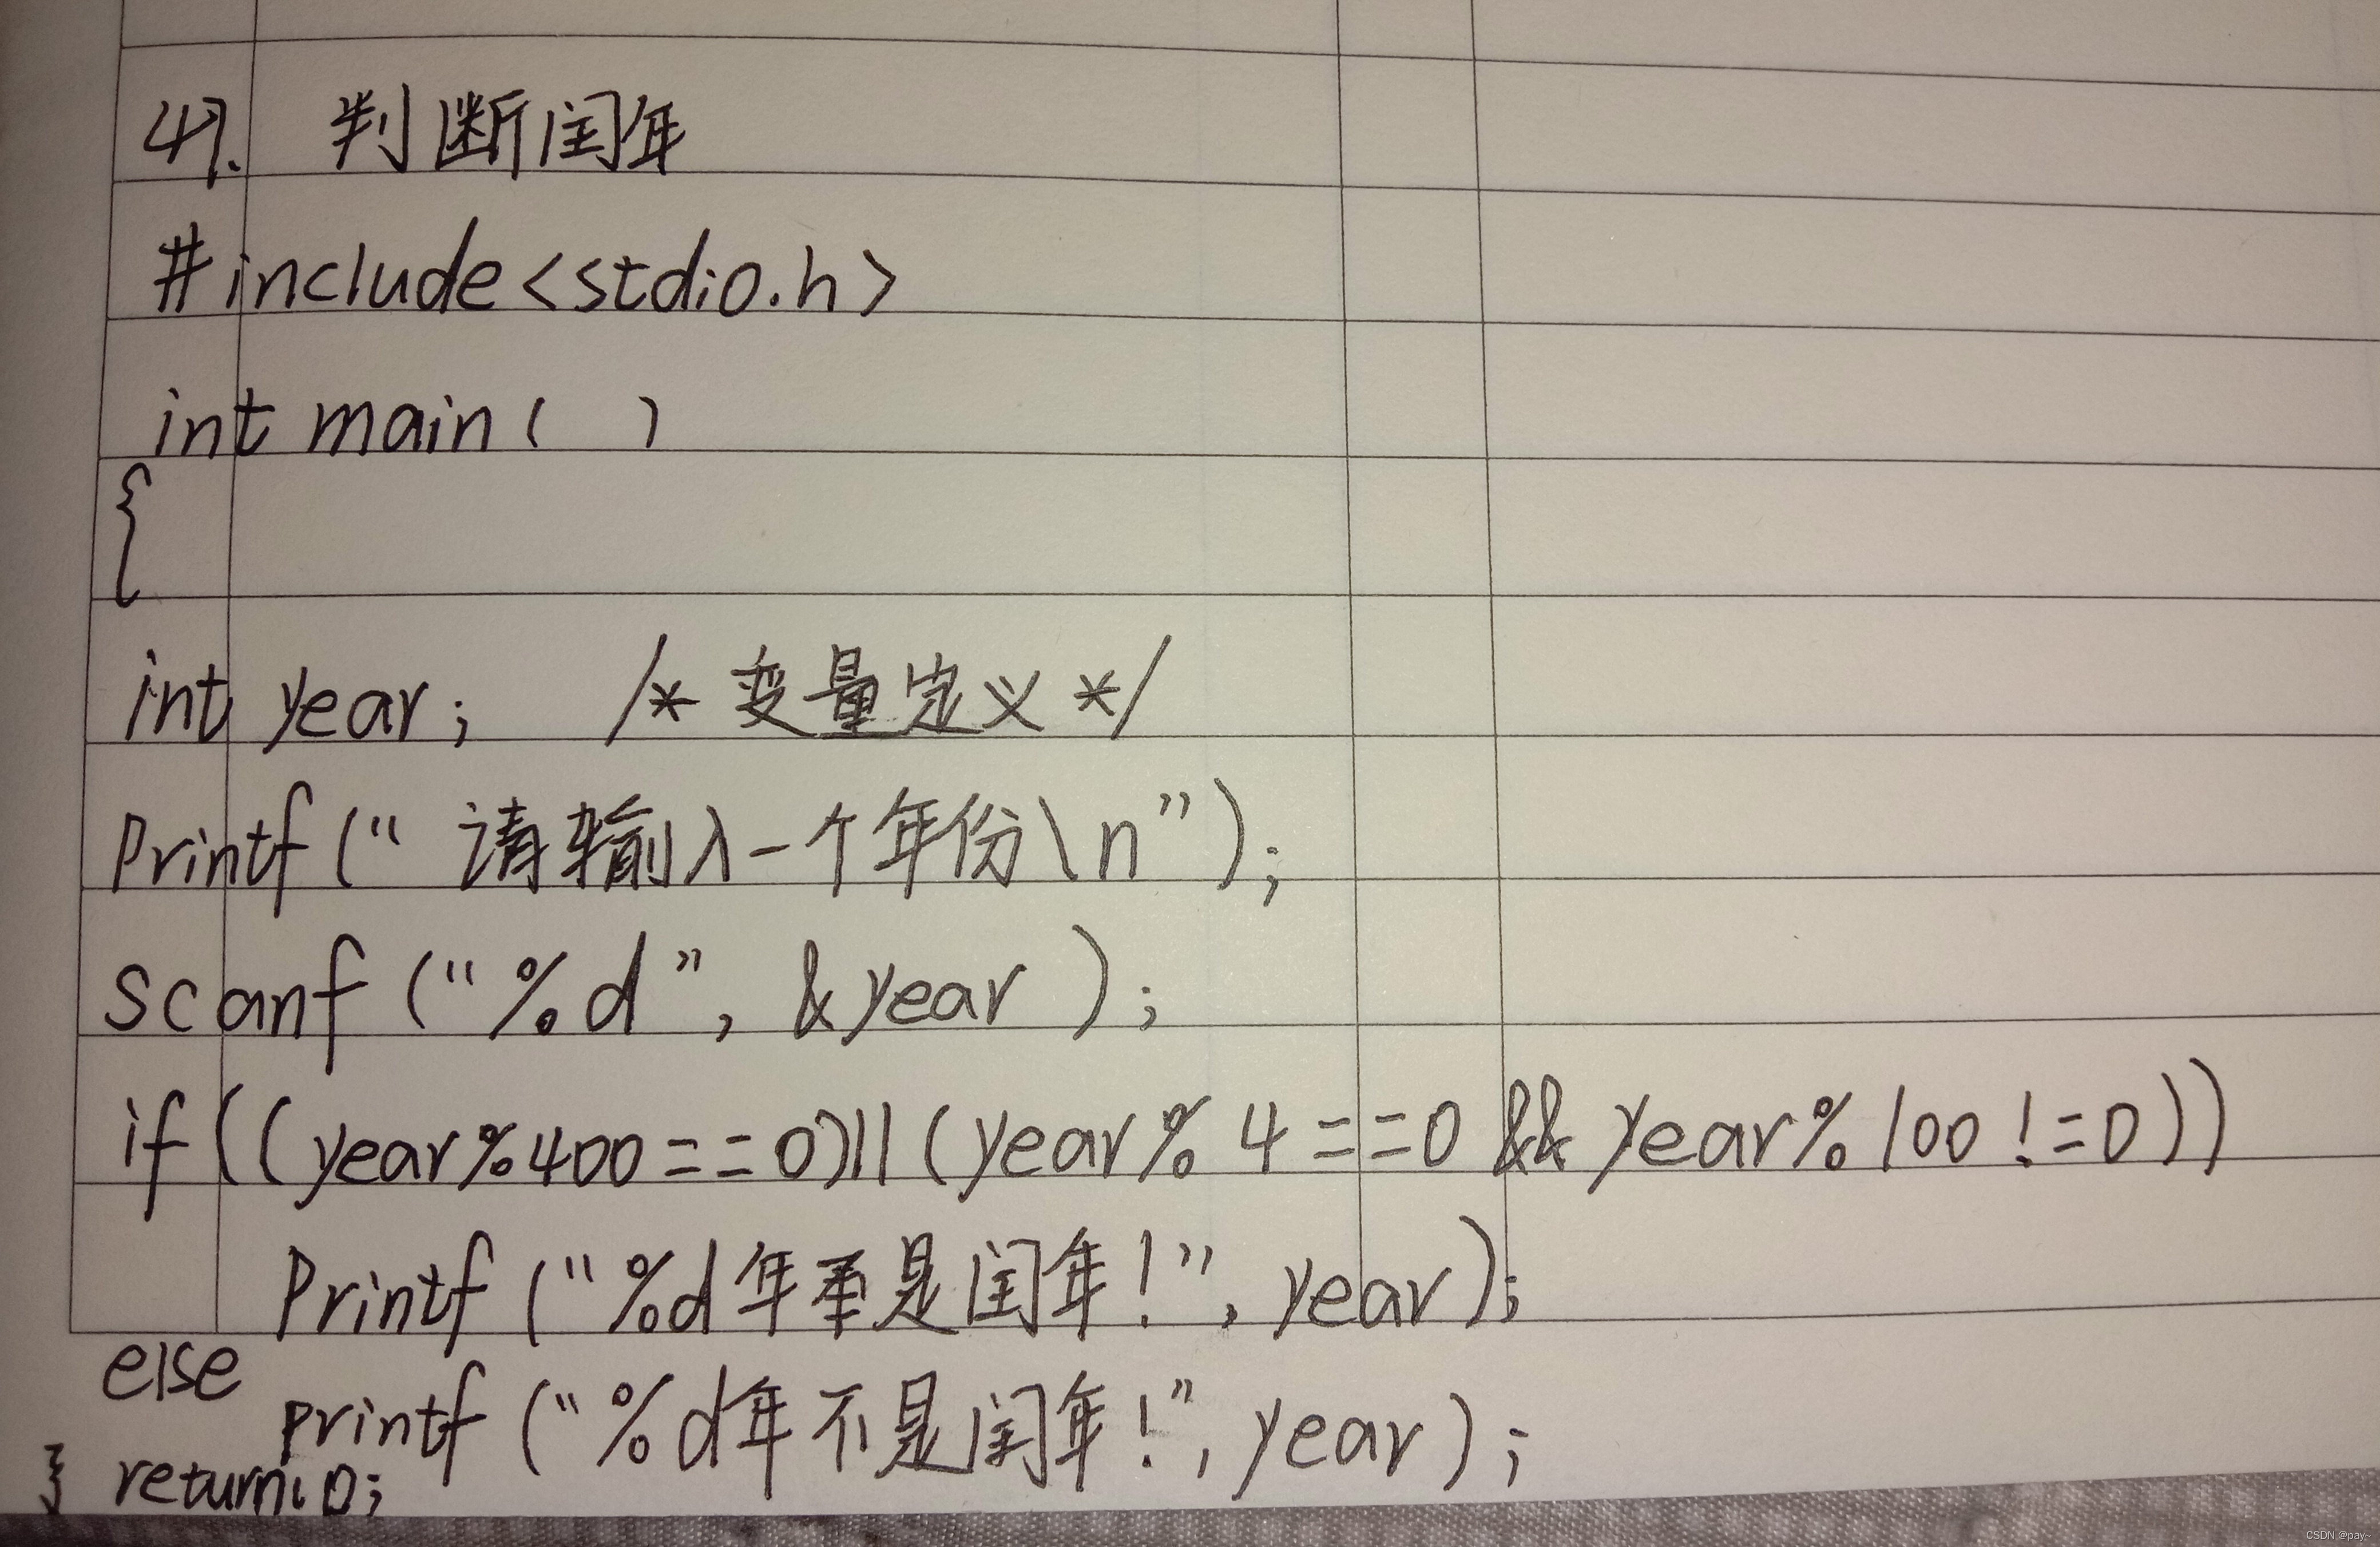 47. 判断闰年
#include<stdio.h>
int main( )
{
int year; /* 变量定义 */
Printf(" 请输入一个年份\n");
scanf("%d", &year );
if((year%400==0)||(year%4==0 && year%100!=0))
Printf("%d年是闰年!", year);
else
printf("%d年不是闰年!", year);
} return 0;
CSDN @pay~